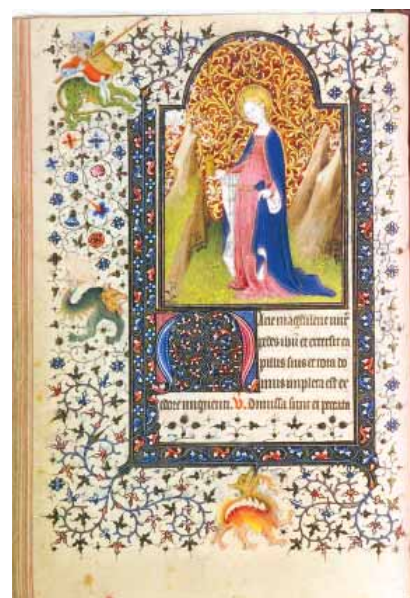 MArie magdalene unxit
pedes ihũ et extersit ca
pillis suis et tota do
mus impleta est ex
odore unguenti. V. Dimissa sunt ei peccata